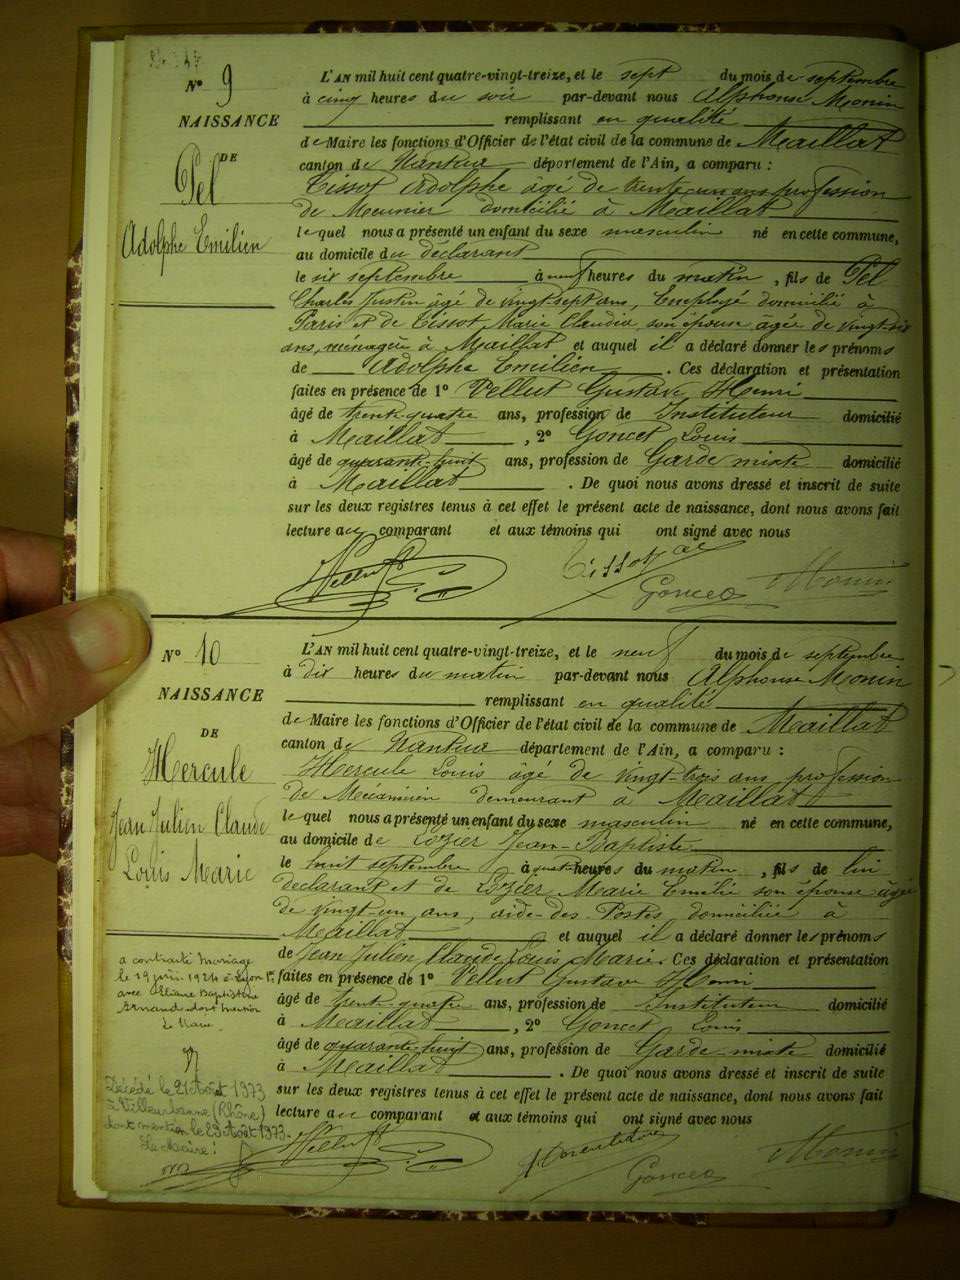 N° 9
NAISSANCE
DE
Pel
Adolphe Emilien
L'AN mil huit cent quatre-vingt-treize, et le sept du mois de septembre
à cinq heures du soir par-devant nous Alphonse Monin
remplissant en qualité
de Maire les fonctions d'Officier de l'état civil de la commune de Maillat
canton de Nantua département de l'Ain, a comparu :
Tissot Adolphe âgé de trente-un ans profession
de Meunier domicilié à Maillat
lequel nous a présenté un enfant du sexe masculin né en cette commune,
au domicile du déclarant
le six septembre à neuf heures du matin, fils de Pel
Charles Justin âgé de vingt-sept ans, Employé domicilié à
Paris et de Tissot Marie Claudia, son épouse, âgée de vingt-dix
ans, ménagère à Maillat et auquel il a déclaré donner les prénoms
de Adolphe Emilien. Ces déclaration et présentation
faites en présence de 1° Vellut Gustave Henri
âgé de trente-quatre ans, profession de Instituteur domicilié
à Maillat, 2° Goncet Louis
âgé de quarante-huit ans, profession de Garde mixte domicilié
à Maillat. De quoi nous avons dressé et inscrit de suite
sur les deux registres tenus à cet effet le présent acte de naissance, dont nous avons fait
lecture au comparant et aux témoins qui ont signé avec nous
Vellut Tissot
Goncet Monin
N° 10
NAISSANCE
DE
Hercule
Jean Julien Claude
Louis Marie
L'AN mil huit cent quatre-vingt-treize, et le neuf du mois de septembre
à dix heures du matin par-devant nous Alphonse Monin
remplissant en qualité
de Maire les fonctions d'Officier de l'état civil de la commune de Maillat
canton de Nantua département de l'Ain, a comparu :
Hercule Louis âgé de vingt-trois ans profession
de Mécanicien demeurant à Maillat
lequel nous a présenté un enfant du sexe masculin né en cette commune,
au domicile de Lozier Jean-Baptiste
le huit septembre à quatre heures du matin, fils de lui
déclarant et de Lozier Marie Emélie son épouse âgée
de vingt-un ans, aide-des-Postes domiciliée à
Maillat et auquel il a déclaré donner les prénoms
de Jean Julien Claude Louis Marie. Ces déclaration et présentation
faites en présence de 1° Vellut Gustave Henri
âgé de trente-quatre ans, profession de Instituteur domicilié
à Maillat, 2° Goncet Louis
âgé de quarante-huit ans, profession de Garde-mixte domicilié
à Maillat. De quoi nous avons dressé et inscrit de suite
sur les deux registres tenus à cet effet le présent acte de naissance, dont nous avons fait
lecture au comparant et aux témoins qui ont signé avec nous
Vellut
Goncet Monin
a contracté mariage
le 19 juin 1924 à Lyon
avec Eliane Baptistine
dont mention
Le Maire
Décédé le 21 Août 1973
à Villeurbanne (Rhône)
dont mention le 29 Août 1973.
Le Maire :